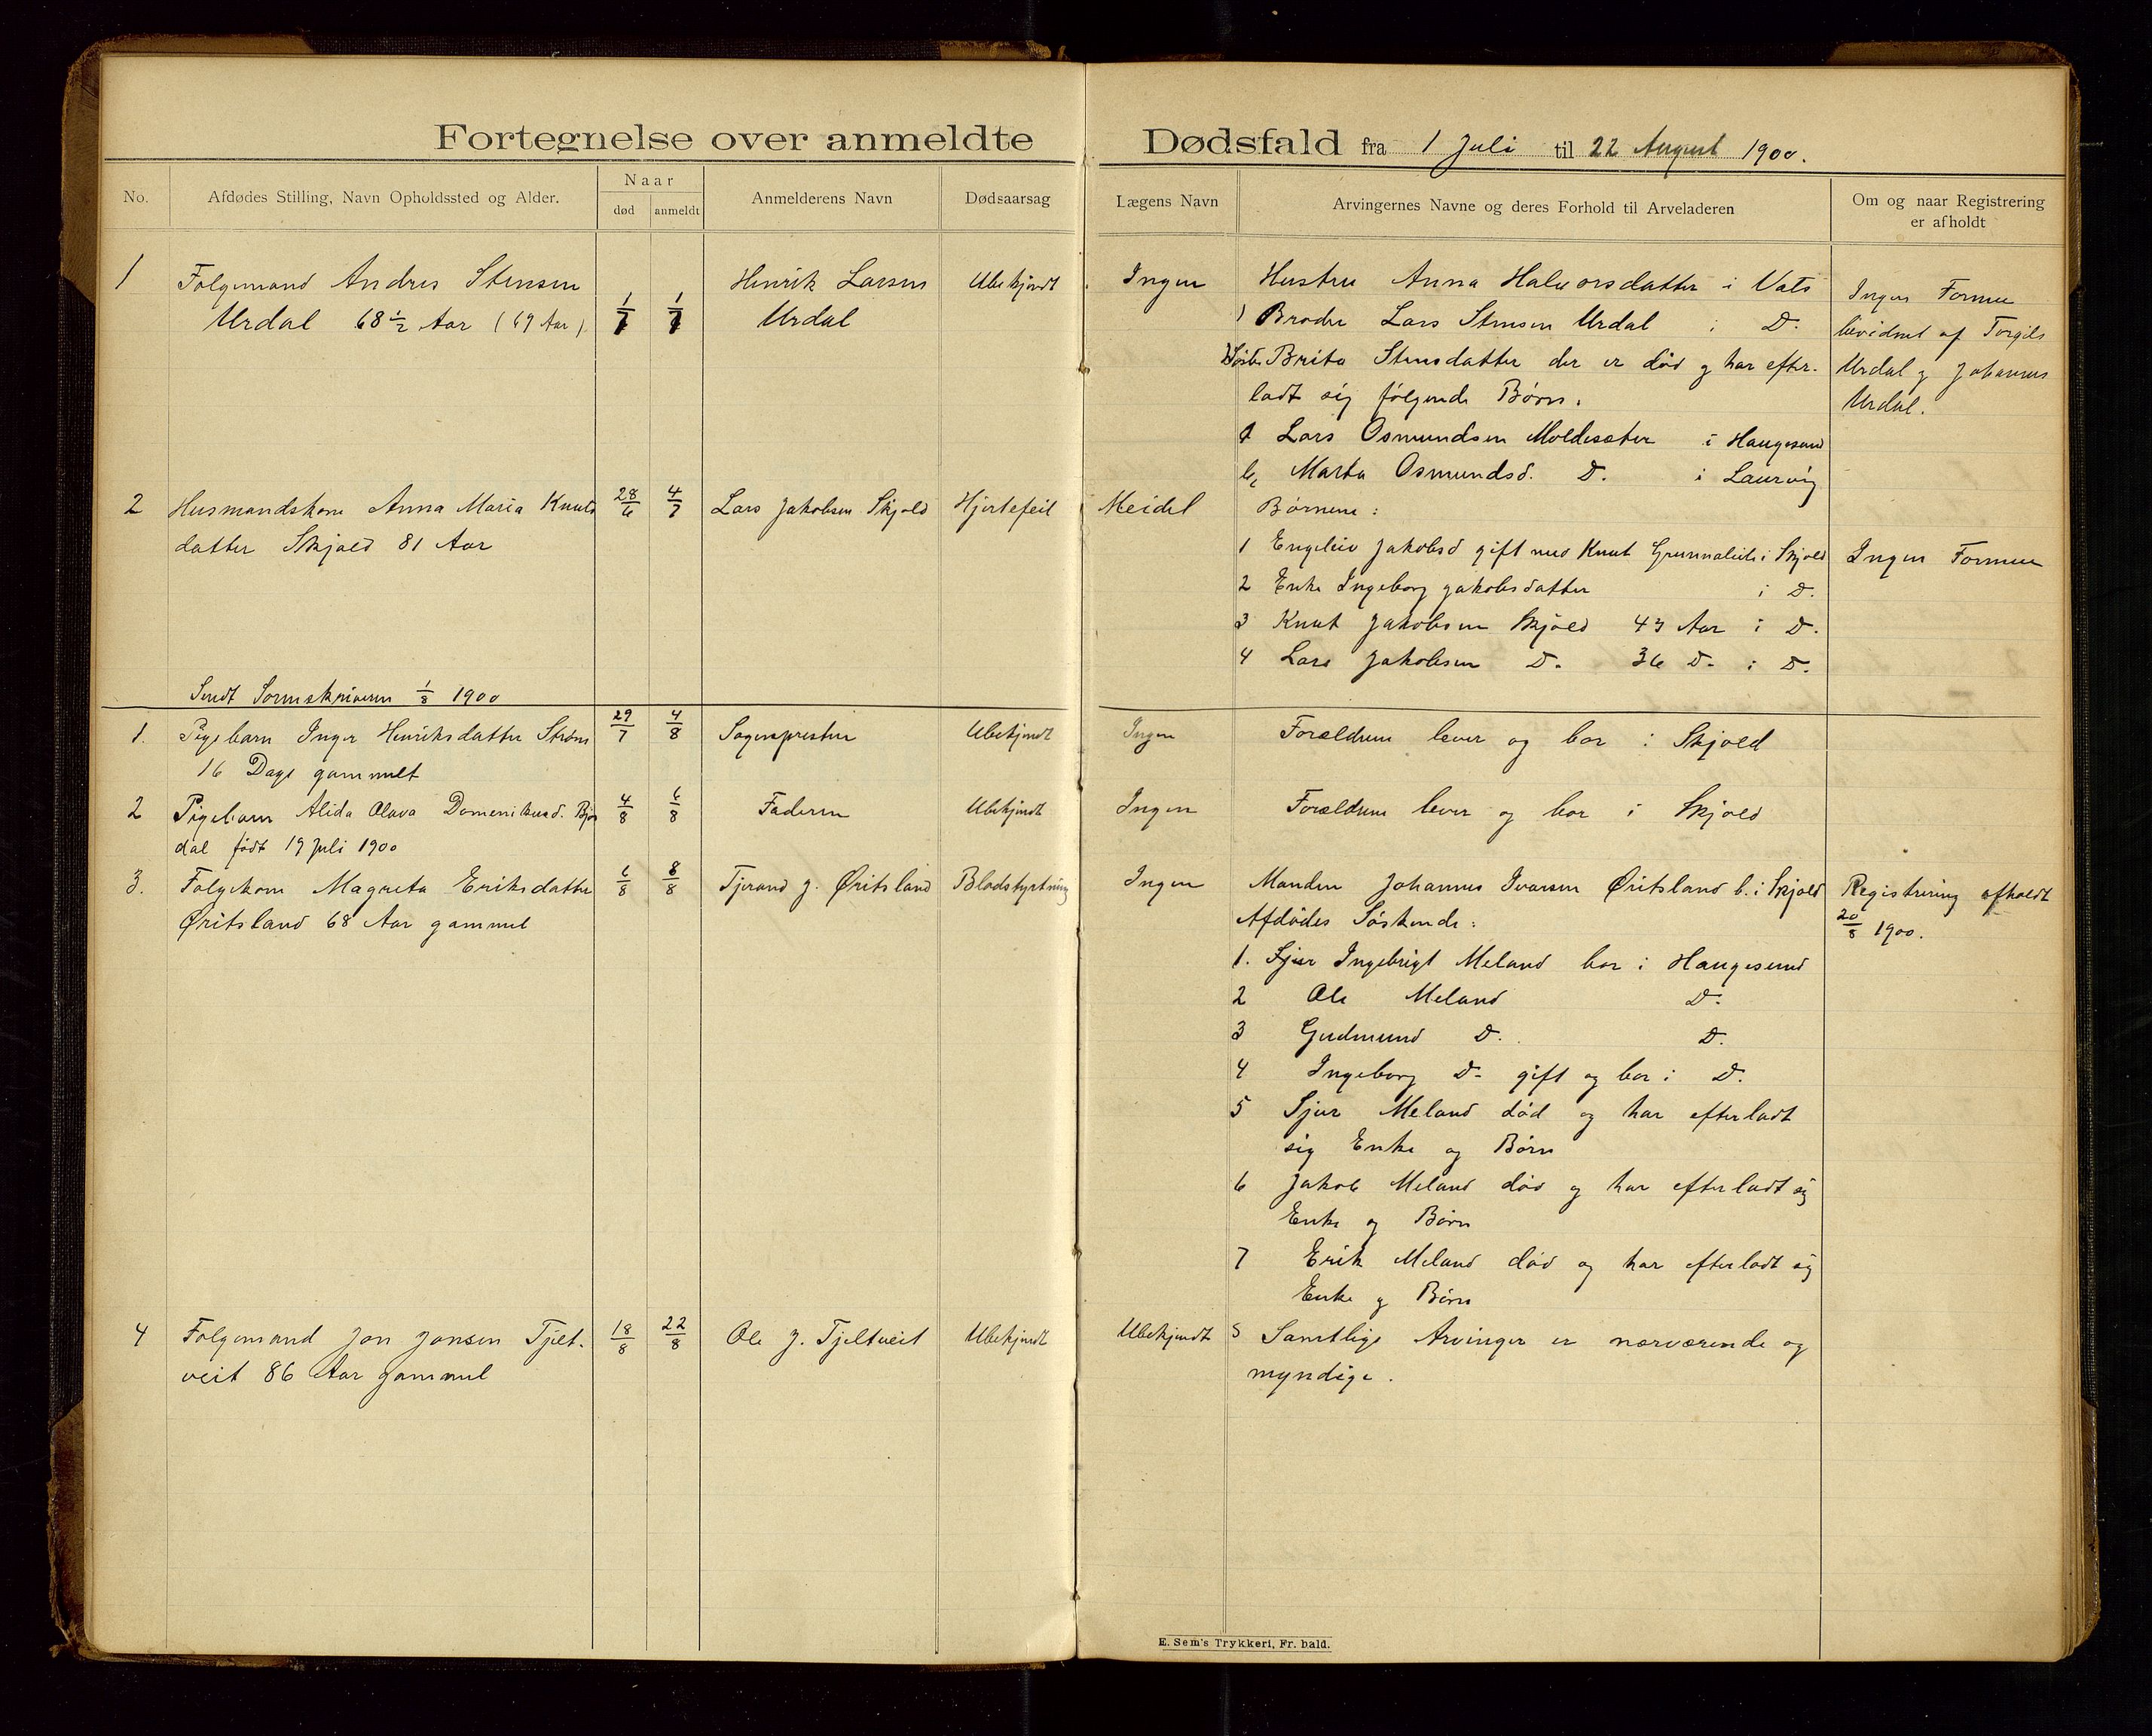 Fortegnelse over anmeldte Dødsfald fra 1 Juli til 22 August 1900.
No.
Afdødes Stilling, Navn Opholdssted og Alder.
Naar
død anmeldt
Anmelderens Navn
Dødsaarsag
Lægens Navn
Arvingernes Navne og deres Forhold til Arveladeren
Om og naar Registrering
er afholdt
1 Folgemand Andres Stensen
Urdal 68 1/2 Aar (69 Aar)
1/7 1/7
Henrik Larsen
Urdal
Ubekjendt
Ingen
Hustru Anna Halvorsdatter i Vats
1) Broder Lars Stensen Urdal i D.
2) Søster Brita Stensdatter der er død og har efter-
ladt sig følgende Børn.
a Lars Osmundsen Moldesæter i Haugesund
b, Marta Osmundsd. D. i Laurvig
Ingen Formue
bevidnet af Torgils
Urdal og Johannes
Urdal.
2 Husmandskone Anna Maria Knuts
datter Skjold 81 Aar
28/6 4/7
Lars Jakobsen Skjold
Hjertefeil
Meidel
Børnene:
1 Engeleiv Jakobsd gift med Knut Grunnaleite i Skjold
2 Enke Ingeborg Jakobsdatter i D.
3 Knut Jakobsen Skjold 43 Aar i D.
4 Lars Jakobsen D. 36 D. i D.
Ingen Formue
Sendt Sorenskriveren 1/8 1900
1. Pigebarn Inger Henriksdatter Strøm
16 Dage gammelt
29/7 4/8
Sognepresten
Ubekjendt
Ingen
Forældrene lever og bor i Skjold
2 Pigebarn Alida Olava Domenikusd. Bjør
dal født 19 Juli 1900
4/8 6/8
Faderen
Ubekjendt
Ingen
Forældrene lever og bor i Skjold
3. Folgekone Magreta Eriksdatter
Øritsland 68 Aar gammel
6/8 8/8
Tjerand J. Øritsland
Blodstyrtning
Ingen
Manden Johannes Ivarsen Øritsland b. i Skjold
Afdødes Søskende:
1. Sjur Ingebrigt Meland bor i Haugesund
2 Ole Meland D.
3 Gudmund D. D.
4 Ingeborg D. gift og bor i D.
5 Sjur Meland død og har efterladt
sig Enke og Børn
6 Jakob Meland død og har efterladt sig
Enke og Børn
7 Erik Meland død og har efterladt sig
Enke og Børn
Registrering afholdt
20/8 1900.
4 Folgemand Jon Jonsen Tjelt-
veit 86 Aar gammel
18/8 22/8
Ole J. Tjeltveit
Ubekjendt
Ubekjendt
Samtlige Arvinger er nærværende og
myndige.
E. Sem's Trykkeri, Fr. hald.